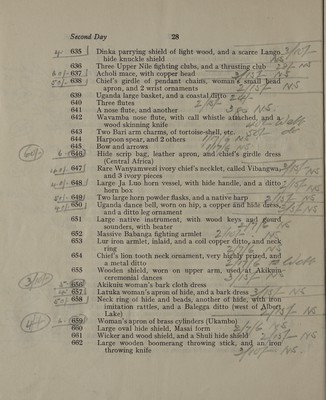 Second Day 28
635 Dinka parrying shield of light wood, and a scarce Lango
hide knuckle shield
636 Three Upper Nile fighting clubs, and a thrusting club
637 Acholi mace, with copper head
638 Chief's girdle of pendant chains, woman's small bead
apron, and 2 wrist ornaments
639 Uganda large basket, and a coastal ditto
640 Three flutes
641 A nose flute, and another
642 Wavamba nose flute, with call whistle attached, and a
wood skinning knife
643 Two Bari arm charms, of tortoise-shell, etc.
644 Harpoon spear, and 2 others
645 Bow and arrows
646 Hide scrip bag, leather apron, and chief's girdle dress
(Central Africa)
647 Rare Wanyamwesi ivory chief's necklet, called Vibangwa,
and 3 ivory pieces
648 Large Ja Luo horn vessel, with hide handle, and a ditto
horn box
649 Two large horn powder flasks, and a native harp
650 Uganda dance bell, worn on hip, a copper and hide dress,
and a ditto leg ornament
651 Large native instrument, with wood keys and gourd
sounders, with beater
652 Massive Babanga fighting armlet
653 Lur iron armlet, inlaid, and a coil copper ditto, and neck
ring
654 Chief's lion tooth neck ornament, very highly prized, and
a metal ditto
655 Wooden shield, worn on upper arm, used at Akikuiu
ceremonial dances
656 Akikuiu woman's bark cloth dress
657 Latuka woman's apron of hide, and a bark dress
658 Neck ring of hide and beads, another of hide, with iron
imitation rattles, and a Balegga ditto (west of Albert
Lake)
659 Woman's apron of brass cylinders (Ukambo)
660 Large oval hide shield, Masai form
661 Wicker and wood shield, and a Shuli hide shield
662 Large wooden boomerang throwing stick, and an iron
throwing knife